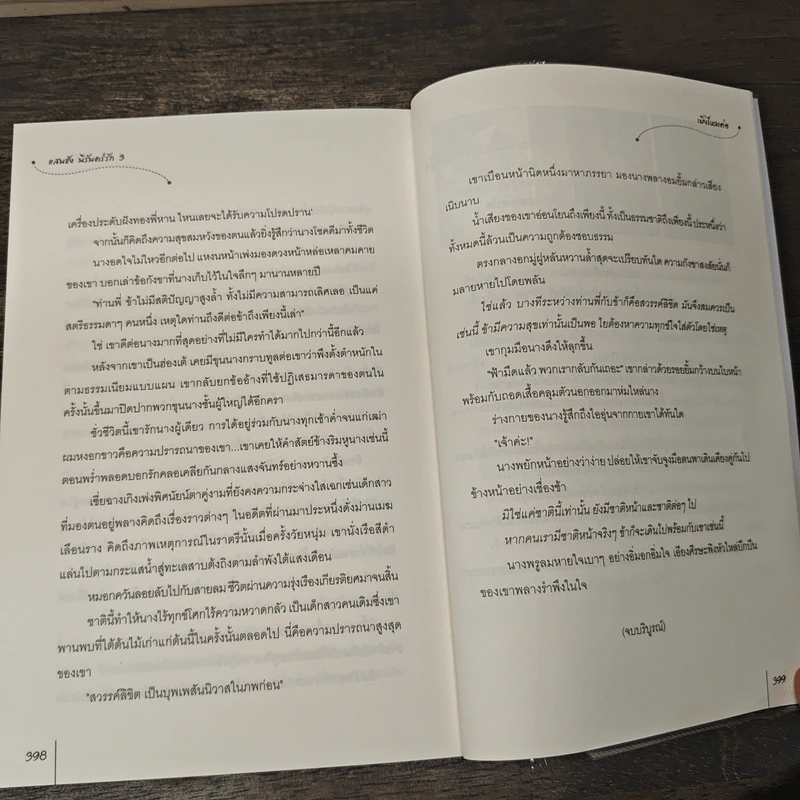 แสนชัง นิรันดร์รัก 3
เครื่องประดับฝังทองพี่หาน ไหนเลยจะได้รับความโปรดปราน'
จากนั้นก็คิดถึงความสุขสมหวังของตนแล้วยิ่งรู้สึกว่านางโชคดีมาทั้งชีวิต
นางอดใจไม่ไหวอีกต่อไป แหงนหน้าเพ่งมองดวงหน้าหล่อเหลาคมคาย
ของเขา บอกเล่าข้อกังขาที่นางเก็บไว้ในใจลึกๆ มานานหลายปี
"ท่านพี่ ข้าไม่มีสติปัญญาสูงล้ำ ทั้งไม่มีความสามารถเลิศเลอ เป็นแค่
สตรีธรรมดาๆ คนหนึ่ง เหตุใดท่านถึงดีต่อข้าถึงเพียงนี้เล่า"
ใช่ เขาดีต่อนางมากที่สุดอย่างที่ไม่มีใครทำได้มากไปกว่านี้อีกแล้ว
หลังจากเขาเป็นฮ่องเต้ เคยมีขุนนางกราบทูลต่อเขาว่าพึงตั้งตำหนักใน
ตามธรรมเนียมแบบแผน เขากลับยกข้ออ้างที่ใช้ปฏิเสธมารดาของตนใน
ครั้งนั้นขึ้นมาปิดปากพวกขุนนางชั้นผู้ใหญ่ได้อีกครา
ชั่วชีวิตนี้เขารักนางผู้เดียว การได้อยู่ร่วมกับนางทุกเช้าค่ำจนแก่เฒ่า
ผมหงอกขาวคือความปรารถนาของเขา...เขาเคยให้คำสัตย์ข้างริมหูนางเช่นนี้
ตอนพร่ำพลอดบอกรักคลอเคลียกันกลางแสงจันทร์อย่างหวานซึ้ง
เซี่ยฉางเกิงเพ่งพิศนัยน์ตาคู่งามที่ยังคงความกระจ่างใสเฉกเช่นเด็กสาว
ที่มองตนอยู่พลางคิดถึงเรื่องราวต่างๆ ในอดีตที่ผ่านมาประหนึ่งดั่งม่านเมฆ
เลือนราง คิดถึงภาพเหตุการณ์ในราตรีนั้นเมื่อครั้งวัยหนุ่ม เขานั่งเรือสีดำ
แล่นไปตามกระแสน้ำสู่ทะเลสาบต้งถิงตามลำพังใต้แสงเดือน
หมอกควันลอยลับไปกับสายลม ชีวิตผ่านความรุ่งเรืองเกียรติยศมาจนสิ้น
ชาตินี้ทำให้นางไร้ทุกข์โศกไร้ความหวาดกลัว เป็นเด็กสาวคนเดิมซึ่งเขา
พานพบที่ใต้ต้นไม้เก่าแก่ต้นนี้ในครั้งนั้นตลอดไป นี่คือความปรารถนาสูงสุด
ของเขา
"สวรรค์ลิขิต เป็นบุพเพสันนิวาสในภพก่อน"
398
เขาเบือนหน้านิดหนึ่งมาหาภรรยา มองนางพลางอมยิ้มกล่าวเสียง
เนิบนาบ
น้ำเสียงของเขาอ่อนโยนถึงเพียงนี้ ทั้งเป็นธรรมชาติถึงเพียงนี้ ประหนึ่งว่า
ทั้งหมดนี้ล้วนเป็นความถูกต้องชอบธรรม
ตรงกลางอกมู่ฝูหลันหวานล้ำสุดจะเปรียบทันใด ความกังขาสงสัยนั้นก็
มลายหายไปโดยพลัน
ใช่แล้ว บางทีระหว่างท่านพี่กับข้าก็คือสวรรค์ลิขิต มันจึงสมควรเป็น
เช่นนี้ ข้ามีความสุขเท่านั้นเป็นพอ ใยต้องหาความทุกข์ใจใส่ตัวโดยใช่เหตุ
เขากุมมือนางดึงให้ลุกขึ้น
"ฟ้ามืดแล้ว พวกเรากลับกันเถอะ" เขากล่าวด้วยรอยยิ้มกว้างบนใบหน้า
พร้อมกับถอดเสื้อคลุมตัวนอกออกมาห่มไหล่นาง
ร่างกายของนางรู้สึกถึงไออุ่นจากกายเขาได้ทันใด
"เจ้าค่ะ!"
นางพยักหน้าอย่างว่าง่าย ปล่อยให้เขาจับจูงมือตนพาเดินเคียงคู่กันไป
ข้างหน้าอย่างเชื่องช้า
มิใช่แค่ชาตินี้เท่านั้น ยังมีชาติหน้าและชาติต่อๆ ไป
หากคนเรามีชาติหน้าจริงๆ ข้าก็จะเดินไปพร้อมกับเขาเช่นนี้
นางพรูลมหายใจเบาๆ อย่างอิ่มอกอิ่มใจ เอียงศีรษะพิงหัวไหล่บึกบึน
ของเขาพลางรำพึงในใจ
(จบบริบูรณ์)
399